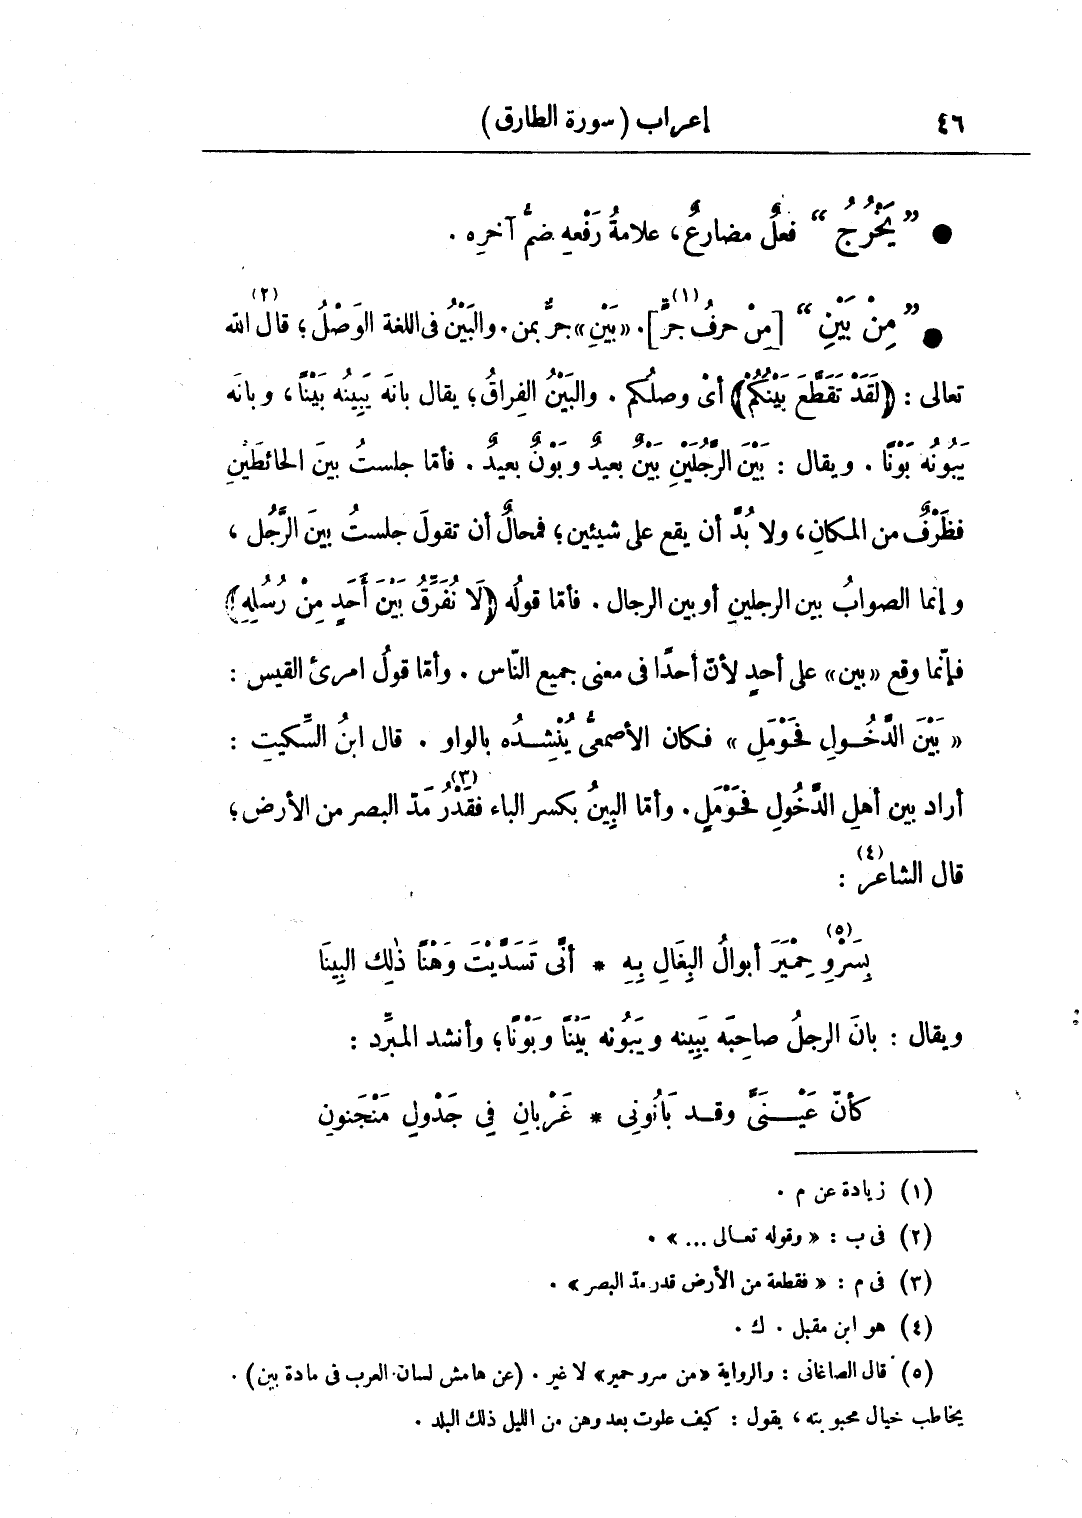 ٤٦ إعراب (سورة الطارق)
● ” يَخْرُجُ “ فعلٌ مضارعٌ، علامةُ رَفْعهِ ضمُّ آخرِه .
● ” مِنْ بَيْنِ “ [مِنْ حرفُ جرٍّ](١). «بَيْنِ» جرٌّ بمن. والبَيْنُ فى اللغة الوَصْلُ؛ قال(٢) الله
تعالى : ﴿لَقَدْ تَقَطَّعَ بَيْنُكُمْ﴾ أىْ وصلُكم . والبَيْنُ الفِراقُ؛ يقال بانَه يَبِينُه بَيْنًا، وبانَه
يَبُونُه بَوْنًا . ويقال : بَيْنَ الرَّجُلَيْنِ بَيْنٌ بعيدٌ وبَوْنٌ بعيدٌ . فأمّا جلستُ بينَ الحائطَيْنِ
فظَرْفٌ من المكانِ، ولا بُدَّ أن يقع على شيئين؛ فمحالٌ أن تقولَ جلستُ بينَ الرَّجُل ،
وإنما الصوابُ بين الرجلينِ أوبين الرجال . فأمّا قولُه ﴿لَا نُفَرِّقُ بَيْنَ أَحَدٍ مِنْ رُسُلِهِ﴾
فإنّما وقع «بين» على أحدٍ لأنّ أحدًا فى معنى جميع النّاس . وأمّا قولُ امرئ القيس :
« بَيْنَ الدَّخُولِ فَحَوْمَلِ » فكان الأصمعىُّ يُنْشِدُه بالواو . قال ابنُ السِّكيتِ :
أراد بين أهلِ الدَّخُولِ فَحَوْمَلٍ. وأمّا البِينُ بكسر الباء فقَدْرُ(٣) مَدّ البصر من الأرض؛
قال الشاعر(٤) :
بِسَرْوِ(٥) حِمْيَرَ أبوالُ البِغَالِ بِهِ * أنَّى تَسَدَّيْتَ وَهْنًا ذٰلِك البِينَا
ويقال : بانَ الرجلُ صاحبَه يَبِينه ويَبُونه بَيْنًا وبَوْنًا؛ وأنشد المبرِّد :
كأنّ عَيْنَىَّ وقد بَانُونِى * غَرْبانِ فِي جَدْولٍ مَنْجَنونِ
(١) زيادة عن م .
(٢) فى ب : « وقوله تعالى ... » .
(٣) فى م : « فقطعة من الأرض قدر مدّ البصر » .
(٤) هو ابن مقبل . ك .
(٥) قال الصاغانى : والرواية «من سرو حمير» لا غير . (عن هامش لسان العرب فى مادة بين) .
يخاطب خيال محبوبته، يقول : كيف علوت بعد وهن من الليل ذلك البلد .